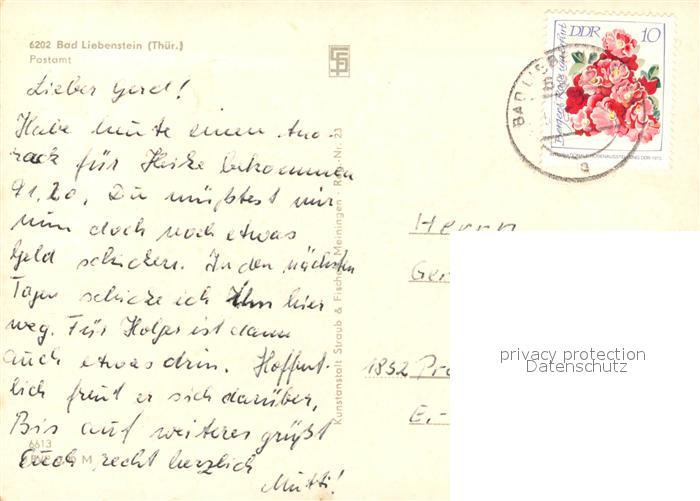 6202 Bad Liebenstein (Thür.)
Postamt
Lieber Gerd!
Habe heute einen Ano-
rack für Heike bekommen
91,20, Du müßtest mir
nun doch noch etwas
Geld schicken. In den nächsten
Tagen schicke ich ihn hier
weg. Für Holger ist dann
auch etwas drin. Hoffent-
lich freut er sich darüber,
Bis auf weiteres grüßt
Euch recht herzlich
Mutti!
6613
M
Kunstanstalt Straub & Fischer Meiningen · Nr. 23
DDR 10
ROSENAUSSTELLUNG DDR 1972
BAD LIEB
a
Herrn
Ge
1832 Pr
E.-
privacy protection
Datenschutz